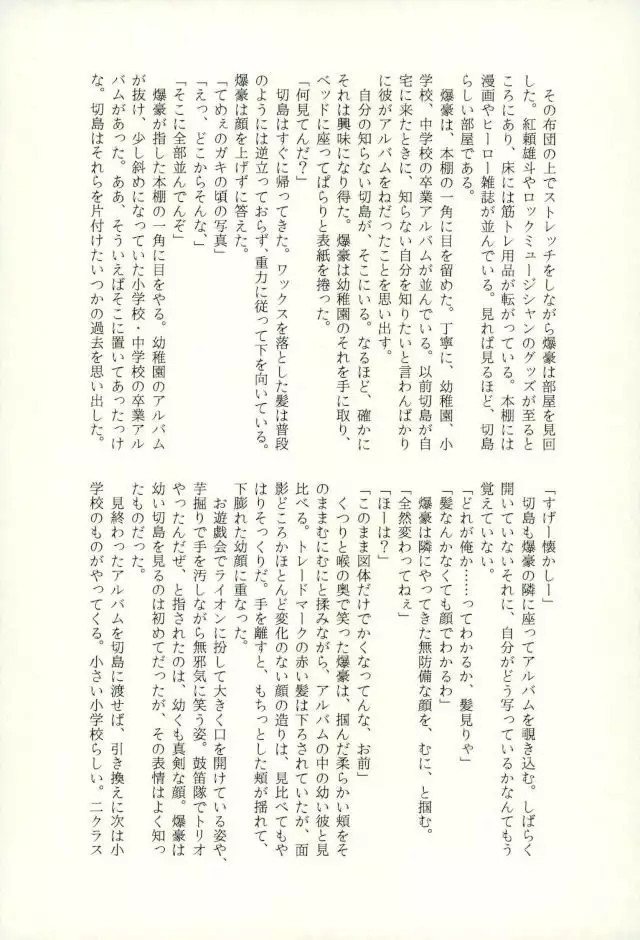 その布団の上でストレッチをしながら爆豪は部屋を見回
した。紅頼雄斗やロックミュージシャンのグッズが至ると
ころにあり、床には筋トレ用品が転がっている。本棚には
漫画やヒーロー雑誌が並んでいる。見れば見るほど、切島
らしい部屋である。
爆豪は、本棚の一角に目を留めた。丁寧に、幼稚園、小
学校、中学校の卒業アルバムが並んでいる。以前切島が自
宅に来たときに、知らない自分を知りたいと言わんばかり
に彼がアルバムをねだったことを思い出す。
自分の知らない切島が、そこにいる。なるほど、確かに
それは興味になり得た。爆豪は幼稚園のそれを手に取り、
ベッドに座ってぱらりと表紙を捲った。
「何見てんだ？」
切島はすぐに帰ってきた。ワックスを落とした髪は普段
のようには逆立っておらず、重力に従って下を向いている。
爆豪は顔を上げずに答えた。
「てめぇのガキの頃の写真」
「えっ、どこからそんな、」
「そこに全部並んでんぞ」
爆豪が指した本棚の一角に目をやる。幼稚園のアルバム
が抜け、少し斜めになっていた小学校・中学校の卒業アル
バムがあった。ああ、そういえばそこに置いてあったっけ
な。切島はそれらを片付けたいつかの過去を思い出した。
「すげー懐かしー」
切島も爆豪の隣に座ってアルバムを覗き込む。しばらく
開いていないそれに、自分がどう写っているかなんてもう
覚えていない。
「どれが俺か……ってわかるか、髪見りゃ」
「髪なんかなくても顔でわかるわ」
爆豪は隣にやってきた無防備な顔を、むに、と掴む。
「全然変わってねぇ」
「ほーは？」
「このまま図体だけでかくなってんな、お前」
くつりと喉の奥で笑った爆豪は、掴んだ柔らかい頬をそ
のままむにむにと揉みながら、アルバムの中の幼い彼と見
比べる。トレードマークの赤い髪は下ろされていたが、面
影どころかほとんど変化のない顔の造りは、見比べてもや
はりそっくりだ。手を離すと、もちっとした頬が揺れて、
下膨れた幼顔に重なった。
お遊戯会でライオンに扮して大きく口を開けている姿や、
芋掘りで手を汚しながら無邪気に笑う姿。鼓笛隊でトリオ
やったんだぜ、と指されたのは、幼くも真剣な顔。爆豪は
幼い切島を見るのは初めてだったが、その表情はよく知っ
たものだった。
見終わったアルバムを切島に渡せば、引き換えに次は小
学校のものがやってくる。小さい小学校らしい。二クラス